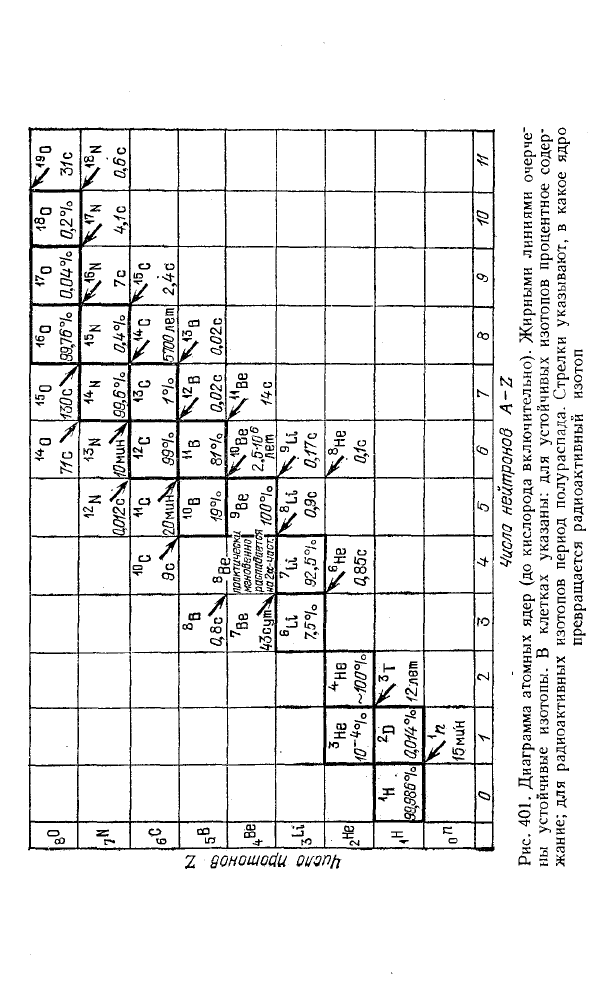 Число протонов Z
₈O
¹⁴O
71 с
¹⁵O
130 с
¹⁶O
99,76%
¹⁷O
0,04%
¹⁸O
0,2%
¹⁹O
31 с
₇N
¹²N
0,012 с
¹³N
10 мин
¹⁴N
99,6%
¹⁵N
0,4%
¹⁶N
7 с
¹⁷N
4,1 с
¹⁸N
0,6 с
₆C
¹⁰C
9 с
¹¹C
20 мин
¹²C
99%
¹³C
1%
¹⁴C
5700 лет
¹⁵C
2,4 с
₅B
⁸B
0,8 с
¹⁰B
19%
¹¹B
81%
¹²B
0,02 с
¹³B
0,02 с
₄Be
⁷Be
43 сут
⁸Be
практически
мгновенно
распадается
на 2α-част.
⁹Be
100%
¹⁰Be
2,5·10⁶
лет
¹¹Be
14 с
₃Li
⁶Li
7,5%
⁷Li
92,5%
⁸Li
0,9 с
⁹Li
0,17 с
₂He
³He
10⁻⁴%
⁴He
~100%
⁶He
0,85 с
⁸He
0,1 с
₁H
¹H
99,986%
²D
0,014%
³T
12 лет
₀n
¹n
15 мин
0 1 2 3 4 5 6 7 8 9 10 11
Число нейтронов A–Z
Рис. 401. Диаграмма атомных ядер (до кислорода включительно). Жирными линиями очерче-
ны устойчивые изотопы. В клетках указаны: для устойчивых изотопов процентное содер-
жание; для радиоактивных изотопов период полураспада. Стрелки указывают, в какое ядро
превращается радиоактивный изотоп